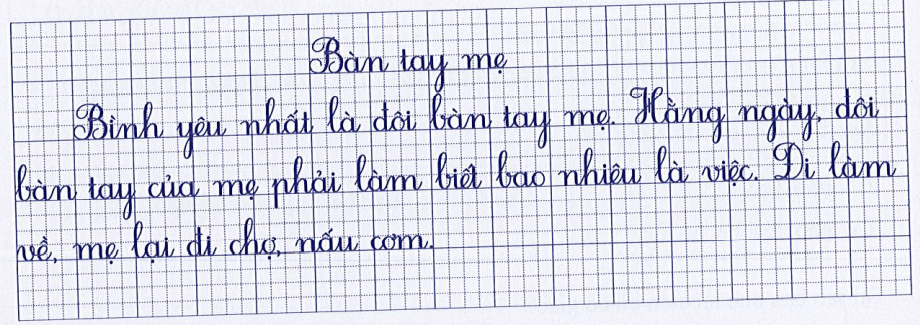 Bàn tay mẹ
Bình yêu nhất là đôi bàn tay mẹ. Hằng ngày, đôi
bàn tay của mẹ phải làm biết bao nhiêu là việc. Đi làm
về, mẹ lại đi chợ, nấu cơm.